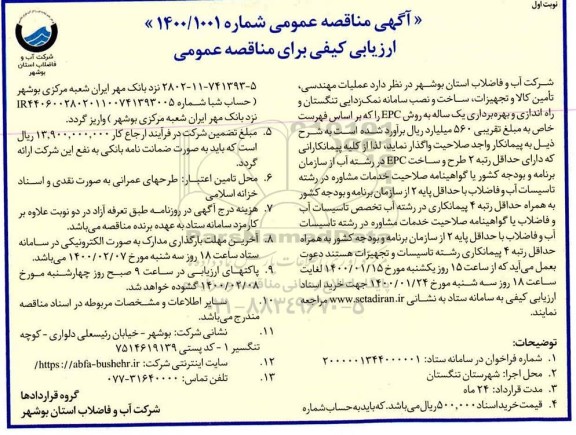 نوبت اول
« آگهی مناقصه عمومی شماره ۱۴۰۰/۱۰۰۱ »
ارزیابی کیفی برای مناقصه عمومی
شرکت آب و
فاضلاب استان
بوشهر
شرکت آب و فاضلاب استان بوشهر در نظر دارد عملیات مهندسی،
تأمین کالا و تجهیزات، ساخت و نصب سامانه نمک‌زدایی تنگستان و
راه اندازی و بهره‌برداری یک ساله به روش EPC را که بر اساس فهرست
خاص به مبلغ تقریبی ۵۶۰ میلیارد ریال برآورد شده است به شرح
ذیل به پیمانکار واجد صلاحیت واگذار نماید. لذا از کلیه پیمانکارانی
که دارای حداقل رتبه ۲ طرح و ساخت EPC در رشته آب از سازمان
برنامه و بودجه کشور یا گواهینامه صلاحیت خدمات مشاوره در رشته
تاسیسات آب و فاضلاب با حداقل پایه ۲ از سازمان برنامه و بودجه کشور
به همراه حداقل رتبه ۴ پیمانکاری در رشته آب تخصص تاسیسات آب
و فاضلاب یا گواهینامه صلاحیت خدمات مشاوره در رشته تاسیسات
آب و فاضلاب با حداقل پایه ۲ از سازمان برنامه و بودجه کشور به همراه
حداقل رتبه ۴ پیمانکاری رشته تاسیسات و تجهیزات هستند دعوت
بعمل می‌آید که از ساعت ۱۵ روز یکشنبه مورخ ۱۴۰۰/۰۱/۱۵ لغایت
ساعت ۱۸ روز سه شنبه مورخ ۱۴۰۰/۰۱/۲۴ جهت خرید اسناد
ارزیابی کیفی به سامانه ستاد به نشانی www.setadiran.ir مراجعه
نمایند.
توضیحات:
۱. شماره فراخوان در سامانه ستاد: ۲۰۰۰۰۰۱۳۴۴۰۰۰۰۰۱
۲. محل اجرا: شهرستان تنگستان
۳. مدت قرارداد: ۲۴ ماه
۴. قیمت خرید اسناد ۵۰۰,۰۰۰ ریال می‌باشد. که باید به حساب شماره
۲۸۰۲-۱۱-۷۴۱۳۹۳-۵ نزد بانک مهر ایران شعبه مرکزی بوشهر
( حساب شبا شماره IR۴۴۰۶۰۰۲۸۰۲۰۱۱۰۰۷۴۱۳۹۳۰۰۵
نزد بانک مهر ایران شعبه مرکزی بوشهر ) واریز گردد.
۵. مبلغ تضمین شرکت در فرآیند ارجاع کار ۱۳,۹۰۰,۰۰۰,۰۰۰ ریال
است که باید به صورت ضمانت نامه بانکی به نفع این شرکت ارائه
گردد.
۶. محل تامین اعتبار: طرحهای عمرانی به صورت نقدی و اسناد
خزانه اسلامی
۷. هزینه درج آگهی در روزنامه طبق تعرفه آزاد در دو نوبت علاوه بر
کارمزد سامانه ستاد به عهده برنده مناقصه می‌باشد.
۸. آخرین مهلت بارگذاری مدارک به صورت الکترونیکی در سامانه
ستاد ساعت ۱۸ روز سه شنبه مورخ ۱۴۰۰/۰۲/۰۷ می‌باشد.
۹. پاکتهای ارزیابی در ساعت ۹ صبح روز چهارشنبه مورخ
۱۴۰۰/۰۲/۰۸ گشوده خواهد شد.
۱۰. سایر اطلاعات و مشخصات مربوطه در اسناد مناقصه
مندرج می‌باشد.
۱۱. نشانی شرکت: بوشهر - خیابان رئیسعلی دلواری - کوچه
تنگسیر ۱ - کد پستی ۷۵۱۴۶۱۹۱۳۹
۱۲. سایت اینترنتی شرکت: https://abfa-bushehr.ir/
۱۳. تلفن تماس: ۰۷۷-۳۱۶۴۰۰۰۰
گروه قراردادها
شرکت آب و فاضلاب استان بوشهر
۰۲۱-۸۸۳۴۹۶۷۰-۵